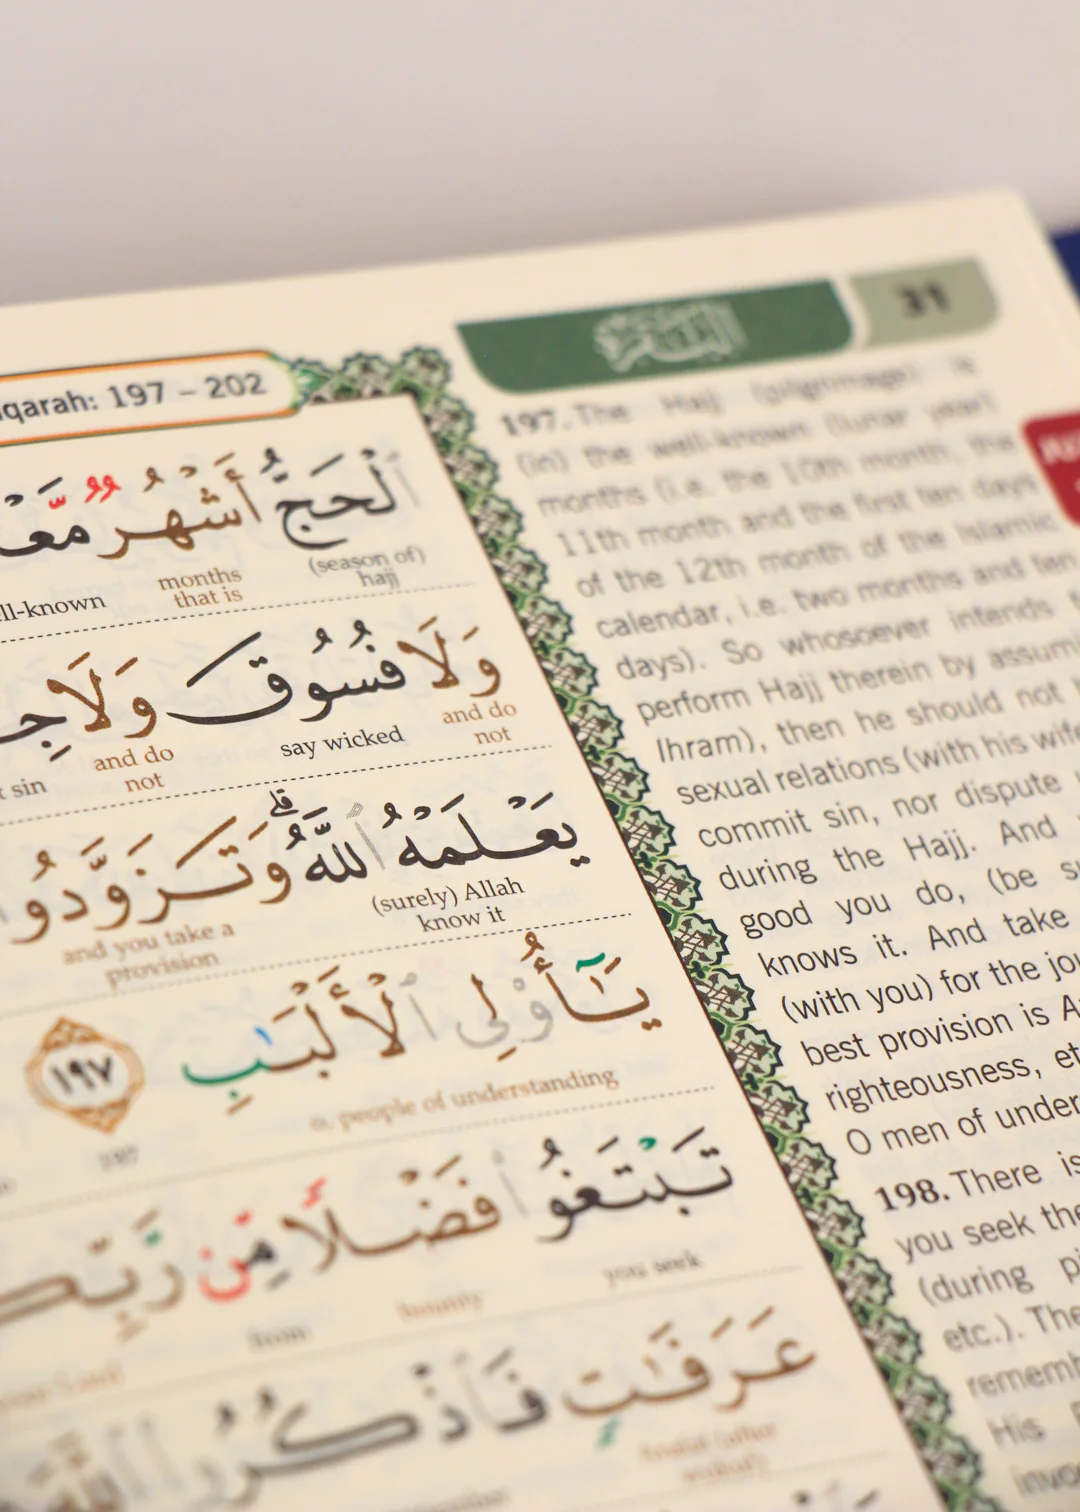 31
qarah: 197 – 202
ٱلْحَجُّ أَشْهُرٌ
(season of)
hajj
months
that is
ll-known
وَلَا فُسُوقَ وَلَا
and do
not
say wicked
and do
not
sin
يَعْلَمْهُ ٱللَّهُ ۗ وَتَزَوَّدُوا
(surely) Allah
know it
and you take a
provision
يَـٰٓأُو۟لِى ٱلْأَلْبَـٰبِ ١٩٧
o, people of understanding
197
تَبْتَغُوا۟ فَضْلًا مِّن
you seek
bounty
from
عَرَفَـٰتٍ فَٱذْكُرُوا۟
197. The Hajj (pilgrimage) is
(in) the well-known (lunar year)
months (i.e. the 10th month, the
11th month and the first ten days
of the 12th month of the Islamic
calendar, i.e. two months and ten
days). So whosoever intends
perform Hajj therein by assumi
Ihram), then he should not
sexual relations (with his wife
commit sin, nor dispute
during the Hajj. And
good you do, (be su
knows it. And take
(with you) for the jou
best provision is A
righteousness, et
O men of under
198. There is
you seek the
(during pi
etc.). The
rememb
His
invo